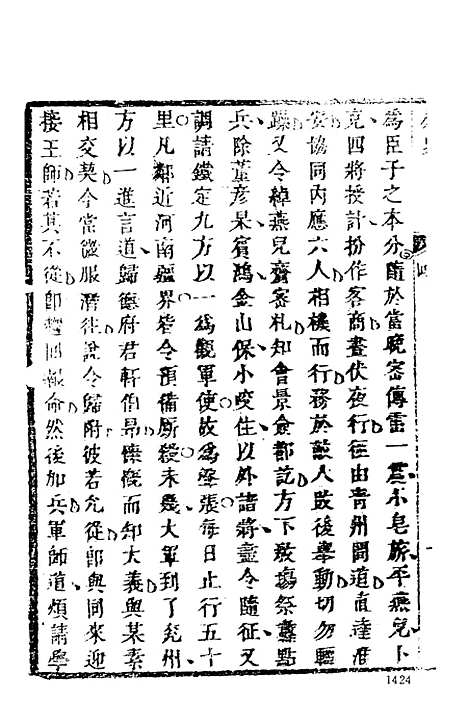 爲臣子之本分隨於當晚密傳雷一震小皂旗平燕兒卜
克四將授計扮作客商晝伏夜行徑由青州間道直達
安協同內應六人相機而行務於敵人敗後舉動切勿輕
躁又令綽燕兒齎密札知會景僉都訖方下教塲祭纛點
兵除董彦杲賓鴻金山保小咬住以外諸將盡令隨征又
調請鐵定九方以一爲觀軍使故爲聲張每日止行五十
里凡鄰近河南疆界皆令預備厮殺未幾大軍到了兗州
方以一進言道歸德府君軒伯昂慷慨而知大義與某素
相交契今當微服潛往說令歸附彼若允從即與同來迎
接王師若其不從即響回報命然後加兵軍師道煩請學
1424